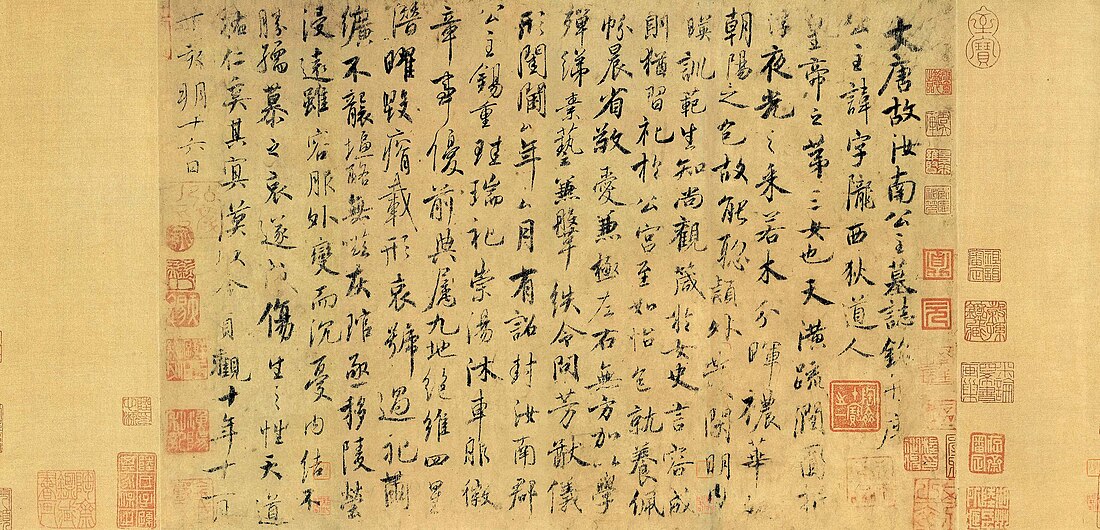 大唐故汝南公主墓誌銘并序
公主諱字隴西狄道人
皇帝之第三女也天潢疏潤圓折
浮夜光之采若木分暉穠華
朝陽之色故能聰穎外發閑明內
暎訓範生知尚觀箴於女史言容成
則猶習礼於公宮至如怡色就養佩
帉晨省敬愛兼極左右無方加以學
殫綈素藝兼鞶紩令問芳猷儀
形閨閫年月有詔封汝南郡
公主錫重珪瑞礼崇湯沐車服徽
章事優前典屬九地絕維四星
潛曜毀瘠載形哀號過礼繭
纊不襲塩酪無嗞灰琯亟移陵塋
浸遠雖容服外變而沉憂內結不
勝孺慕之哀遂傷生之性天道
祐仁奚其冥漠以今貞觀十年十
丁酉朔十六日